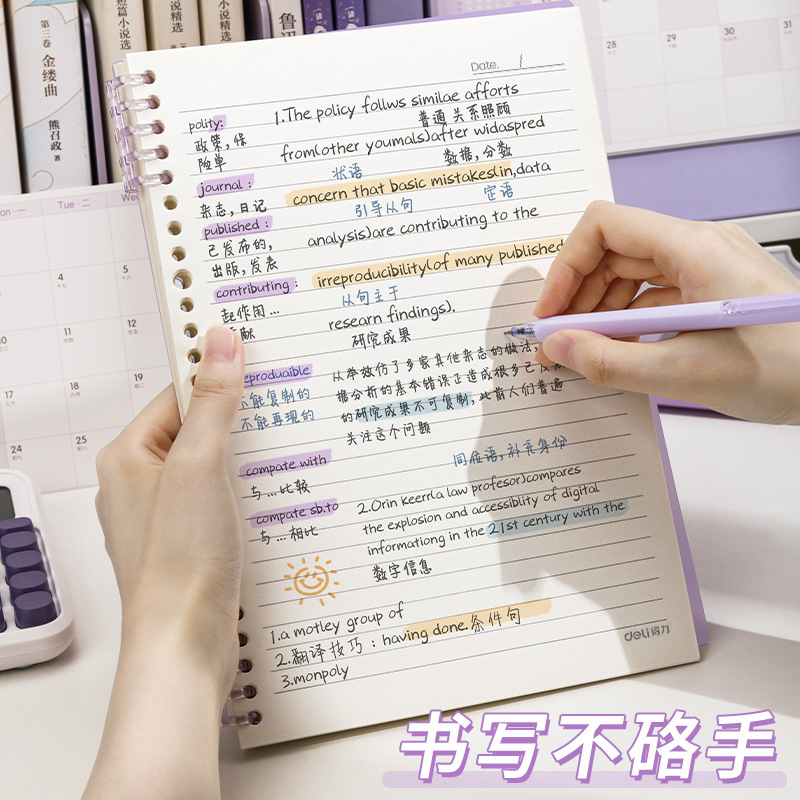 第三卷
金缕曲
熊召政 著
短篇小说精选
小说精选
小说精选
鲁迅
28
29
30
31
Tue · 二
4
5
11
12
17
18
19
24
25
Date. /
polity:
政策,保
险单
1.The policy follws similae afforts
普通 关系照顾
from(other youmals)after widaspred
状语
数据,分数
journal :
杂志,日记
concern that basic mistakes(in,data
引导从句
定语
published :
已发布的,
出版,发表
analysis)are contributing to the
contributing :
起作用...
献
irreproducibility(of many published
从句主于
researn findings).
研究成果
eproduaible
不能复制的
不能再现的
从举放仿了多家其他杂志的做法,
据分析的基本错误正造成很多已发
的研究成果不可复制,此前人们普遍
关注这个问题
compate with
与...比较
同位语,补充身份
compate sb.to
与...相比
2.Orin keerr(a law profesor)compares
the explosion and accessiblity of digital
informationg in the 21st century with the
数字信息
1.a motley group of
2.翻译技巧:having done.条件句
3.monpoly
deli得力
书写不硌手